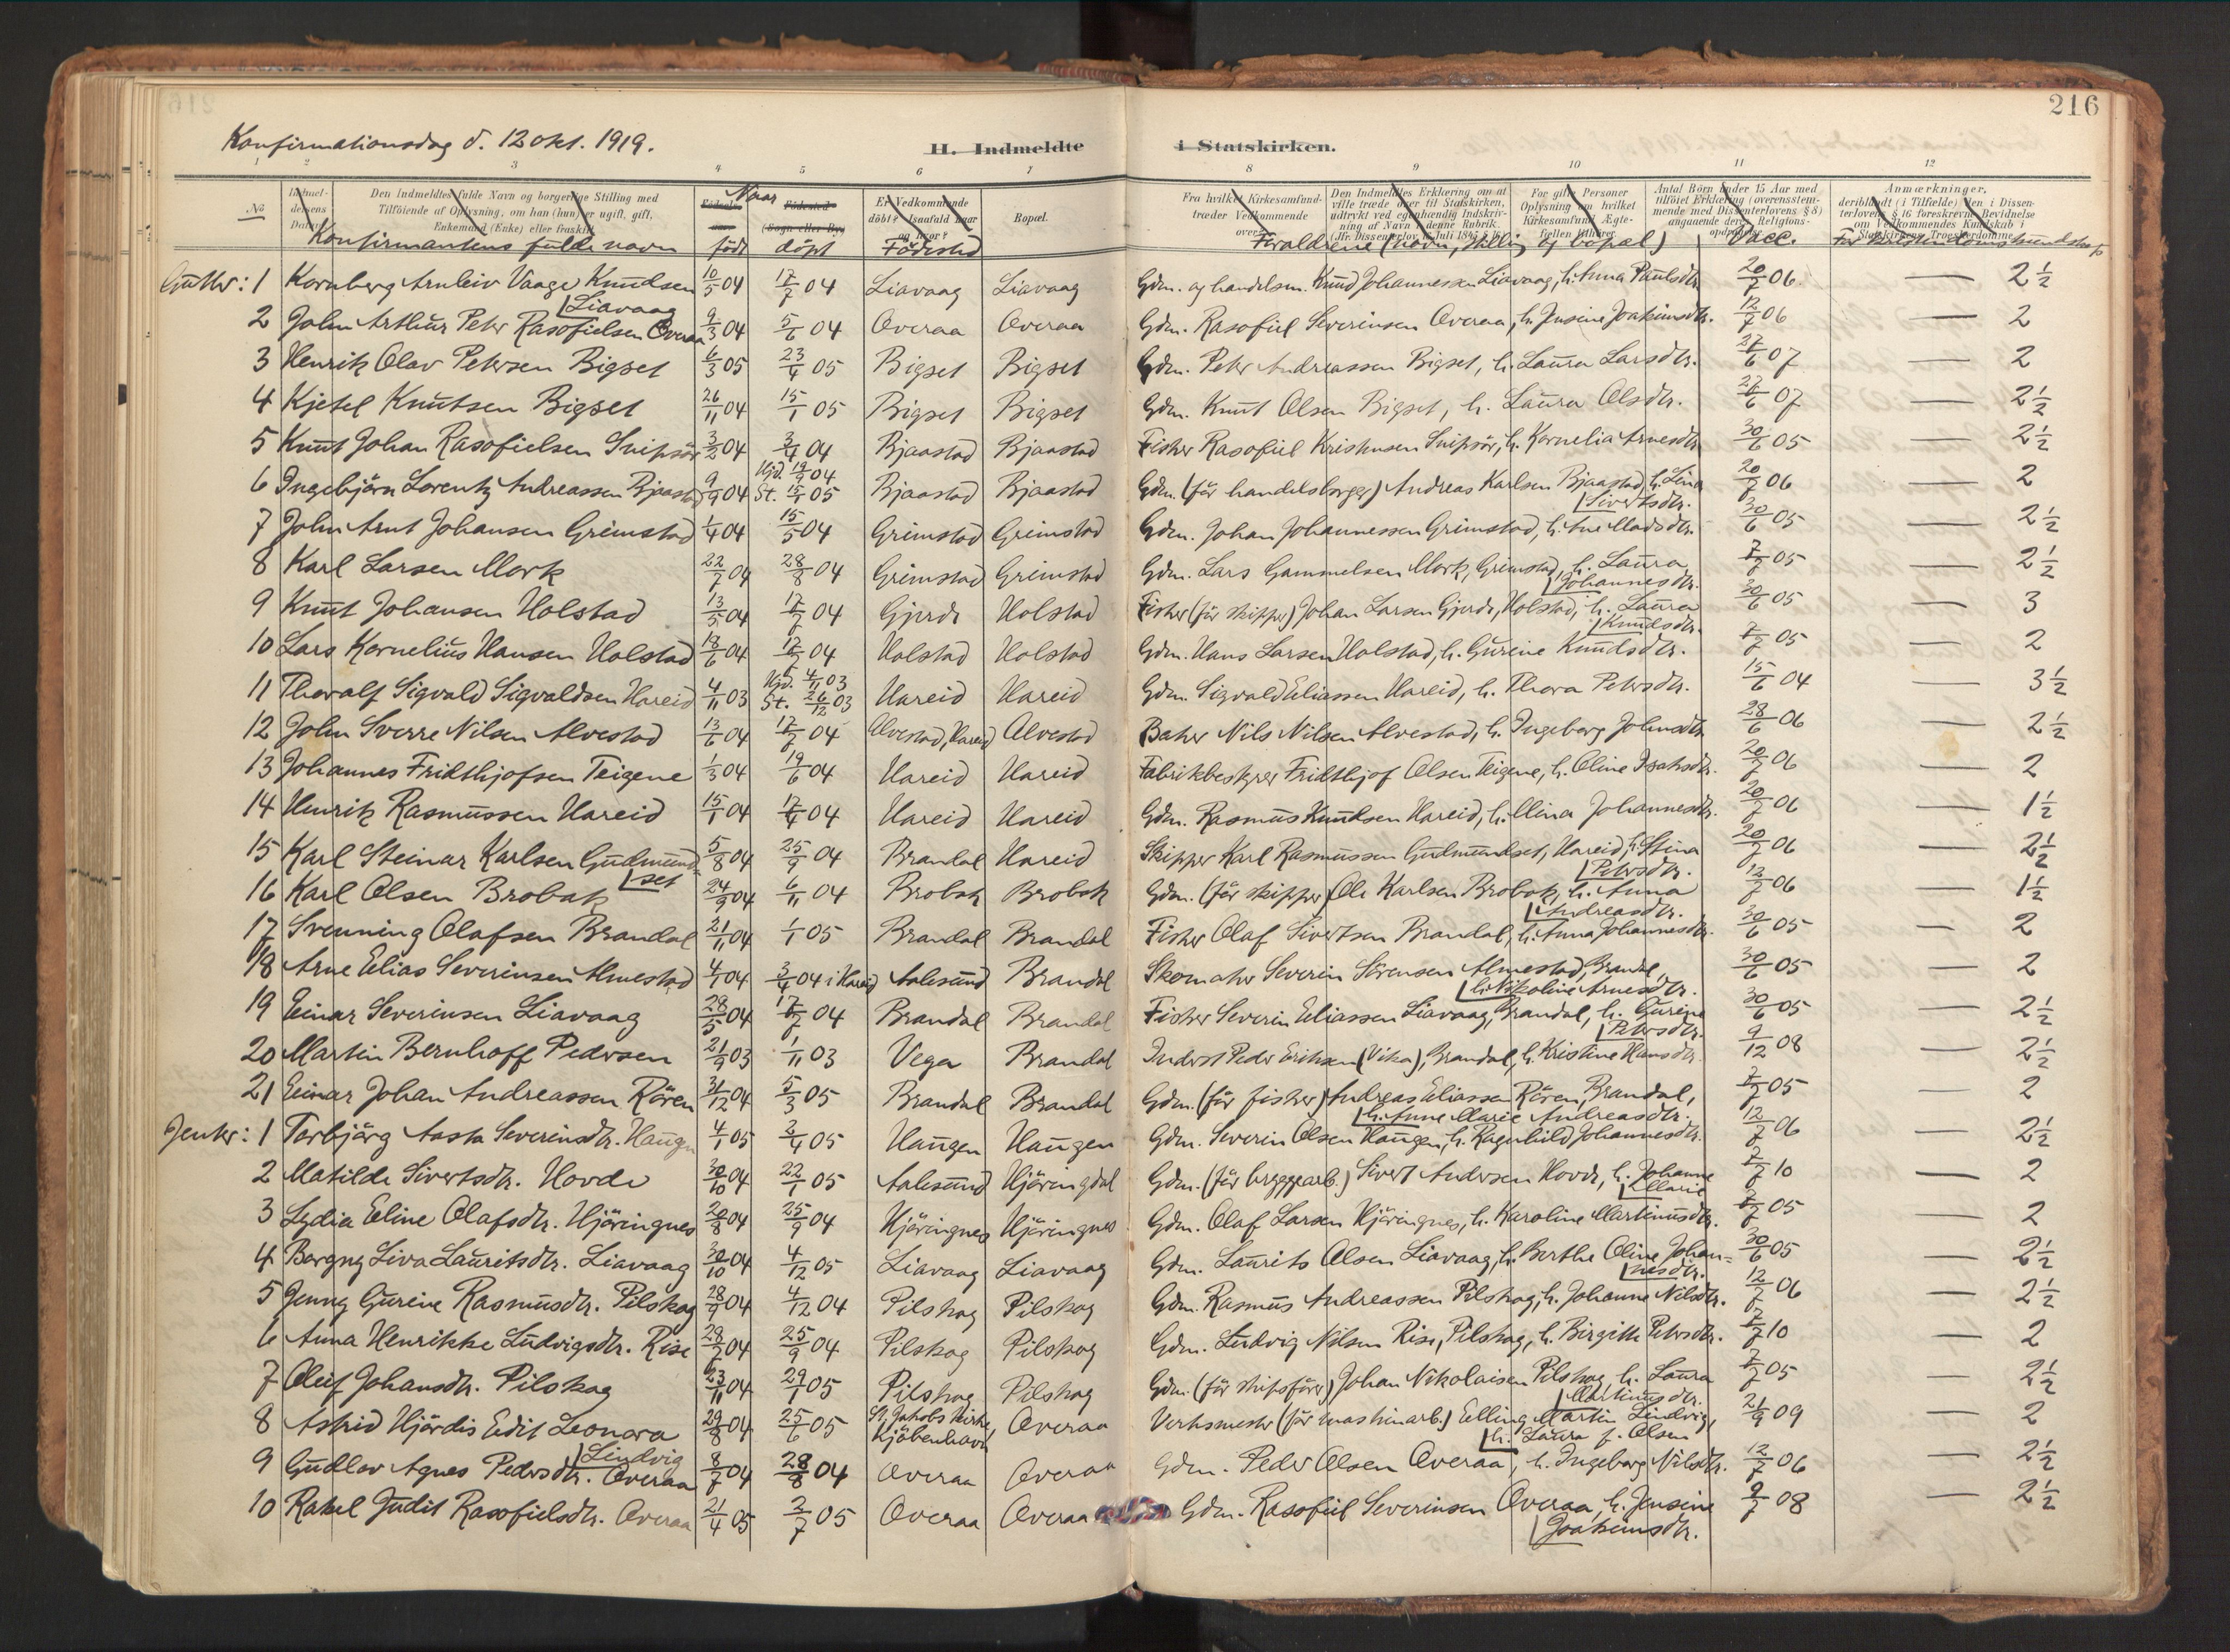 216
Konfirmationsdag d. 12 okt. 1919.
H. Indmeldte i Statskirken.
1 2 3 4 5 6 7 8 9 10 11 12
No Indmeldelsens Datum. Den Indmeldtes fulde Navn og borgerlige Stilling med Tilføiende af Oplysning, om han (hun) er ugift, gift, Enkemand (Enke) eller fraskilt. Fødselsaar Fødested (Sogn eller By) Er Vedkommende døbt? Isaafald naar og hvor? Bopæl. Fra hvilket Kirkesamfund træder Vedkommende over? Den Indmeldtes Erklæring om at ville træde over til Statskirken, udtrykt ved egenhændig Indskrivning af Navn i denne Rubrik. For gifte Personer Oplysning om hvilket Kirkesamfund Ægtefællen tilhører. Antal Børn under 15 Aar med tilføiet Erklæring (overensstemmende med Dissenterlovens § 8) angaaende deres Religionsopdragelse. Anmærkninger,
Konfirmantens fulde navn Naar født døpt Fødested Foraldrene (navn, stilling og bopæl) Vacc.
Gutter: 1 Kornberg Arnleiv Vaage Knudsen Liavaag 10/5 04 17/7 04 Liavaag Liavaag Gdm. og handelsm. Knud Johannessen Liavaag, h. Anna Paulsdtr. 20/7 06 — 2½
2 John Arthur Peter Rasofielsen Overaa 9/3 04 5/6 04 Overaa Overaa Gdm. Rasofiel Severinsen Overaa, h. Jensine Joakimsdtr. 12/7 06 — 2
3 Henrik Olav Petersen Bigset 6/3 05 23/4 05 Bigset Bigset Gdm. Peter Andreassen Bigset, h. Laura Larsdtr. 27/6 07 — 2
4 Kjetel Knutsen Bigset 26/11 04 15/1 05 Bigset Bigset Gdm. Knut Olsen Bigset, h. Laura Olsdtr. 27/6 07 — 2½
5 Knut Johan Rasofielsen Snipsör 3/2 04 3/4 04 Bjaastad Bjaastad Fisker Rasofiel Kristensen Snipsör, h. Kornelia Arnesdtr. 30/6 05 — 2½
6 Ingebjörn Lorentz Andreassen Bjaastad 9/9 04 Hjd. 19/9 04 St. 15/1 05 Bjaastad Bjaastad Gdm. (før handelsborger) Andreas Karlsen Bjaastad, h. Lina Sivertsdtr. 20/7 06 — 2
7 John Arnt Johansen Grimstad 1/4 04 15/5 04 Grimstad Grimstad Gdm. Johan Johannessen Grimstad, h. Ane Madsdtr. 30/6 05 — 2½
8 Karl Larsen Mork 22/7 04 28/8 04 Grimstad Grimstad Gdm. Lars Gammelsen Mork, Grimstad, h. Laura Johannesdtr. 7/7 05 — 2½
9 Knut Johansen Holstad 13/5 04 17/7 04 Gjerde Holstad Fisker (før skipper) Johan Larsen Gjerde, Holstad, h. Laura Knudsdtr. 30/6 05 — 3
10 Lars Kornelius Hansen Holstad 18/6 04 17/7 04 Holstad Holstad Gdm. Hans Larsen Holstad, h. Gurine Knudsdtr. 7/7 05 — 2
11 Thoralf Sigvald Sigvaldsen Hareid 4/11 03 Hjd. 4/11 03 St. 26/12 03 Hareid Hareid Gdm. Sigvald Eliassen Hareid, h. Thora Petersdtr. 15/6 04 — 3½
12 John Sverre Nilsen Alvestad 13/6 04 17/7 04 Alvestad, Hareid Alvestad Baker Nils Nilsen Alvestad, h. Ingeborg Johnsdtr. 28/6 06 — 2½
13 Johannes Fridthjofsen Teigene 1/3 04 19/6 04 Hareid Hareid Fabrikbestyrer Fridthjof Olsen Teigene, h. Oline Isaksdtr. 20/7 06 — 2
14 Henrik Rasmussen Hareid 15/1 04 17/4 04 Hareid Hareid Gdm. Rasmus Knudsen Hareid, h. Mina Johannesdtr. 20/7 06 — 1½
15 Karl Steinar Karlsen Gudmundset 5/8 04 25/9 04 Brandal Hareid Skipper Karl Rasmussen Gudmundset, Hareid, h. Stina Petersdtr. 20/7 06 — 2½
16 Karl Olsen Brobak 24/9 04 6/11 04 Brobak Brobak Gdm. (før skipper) Ole Karlsen Brobak, h. Anna Andreasdtr. 12/7 06 — 1½
17 Svenning Olafsen Brandal 21/11 04 1/1 05 Brandal Brandal Fisker Olaf Sivertsen Brandal, h. Anna Johannesdtr. 30/6 05 — 2
18 Arne Elias Severinsen Almestad 4/1 04 3/4 04 i Hareid Aalesund Brandal Skomaker Severin Sörensen Almestad, Brandal, h. Nikoline Arnesdtr. 30/6 05 — 2
19 Einar Severinsen Liavaag 28/5 04 17/7 04 Brandal Brandal Fisker Severin Eliassen Liavaag, Brandal, h. Gurine Petersdtr. 30/6 05 — 2½
20 Martin Bernhoff Pedersen 21/9 03 1/11 03 Vega Brandal Inderst Peder Eriksen (Vika), Brandal, h. Kristine Hansdtr. 9/12 08 — 2½
21 Einar Johan Andreassen Rören 31/12 04 5/3 05 Brandal Brandal Gdm. (før fisker) Andreas Eliassen Rören, Brandal, h. Anne Marie Andreasdtr. 7/7 05 — 2
Jenter: 1 Torbjörg Aasta Severinsdtr. Haugen 4/1 05 2/4 05 Haugen Haugen Gdm. Severin Olsen Haugen, h. Ragnhild Johannesdtr. 12/7 06 — 2½
2 Matilde Sivertsdtr. Hovde 30/10 04 22/1 05 Aalesund Hjöringdal Gdm. (før bryggearb.) Sivert Andersen Hovde, h. Johanne Marie 7/7 10 — 2
3 Lydia Eline Olafsdtr. Hjöringnes 20/8 04 25/9 04 Hjöringnes Hjöringnes Gdm. Olaf Larsen Hjöringnes, h. Karoline Martinusdtr. 7/7 05 — 2
4 Borgny Liva Lauritsdtr. Liavaag 30/10 04 4/12 05 Liavaag Liavaag Gdm. Laurits Olsen Liavaag, h. Berthe Oline Johannesdtr. 30/6 05 — 2½
5 Jenny Gurine Rasmusdtr. Pilskog 28/9 04 4/12 04 Pilskog Pilskog Gdm. Rasmus Andreassen Pilskog, h. Johanne Nilsdtr. 12/7 06 — 2½
6 Anna Henrikke Ludvigsdtr. Rise 28/7 04 25/9 04 Pilskog Pilskog Gdm. Ludvig Nilsen Rise, Pilskog, h. Birgitte Petersdtr. 7/7 10 — 2
7 Oluf Johansdtr. Pilskog 23/11 04 29/1 05 Pilskog Pilskog Gdm. (før skipsfører) Johan Nikolaisen Pilskog, h. Laura Martinusdtr. 7/7 05 — 2½
8 Astrid Hjördis Edit Leonora Lindvig 29/8 04 25/6 05 St. Jakobs Kirke, Kjöbenhavn Overaa Verksmester (før maskinarb.) Elling Martin Lindvig, h. Laura f. Olsen 21/9 09 — 2
9 Gudlov Agnes Pedersdtr. Overaa 8/7 04 28/8 04 Overaa Overaa Gdm. Peder Olsen Overaa, h. Ingeborg Nilsdtr. 12/7 06 — 2½
10 Rakel Judit Rasofielsdtr. Overaa 21/4 05 2/7 05 Overaa Overaa Gdm. Rasofiel Severinsen Overaa, h. Jensine Joakimsdtr. 9/7 08 — 2½